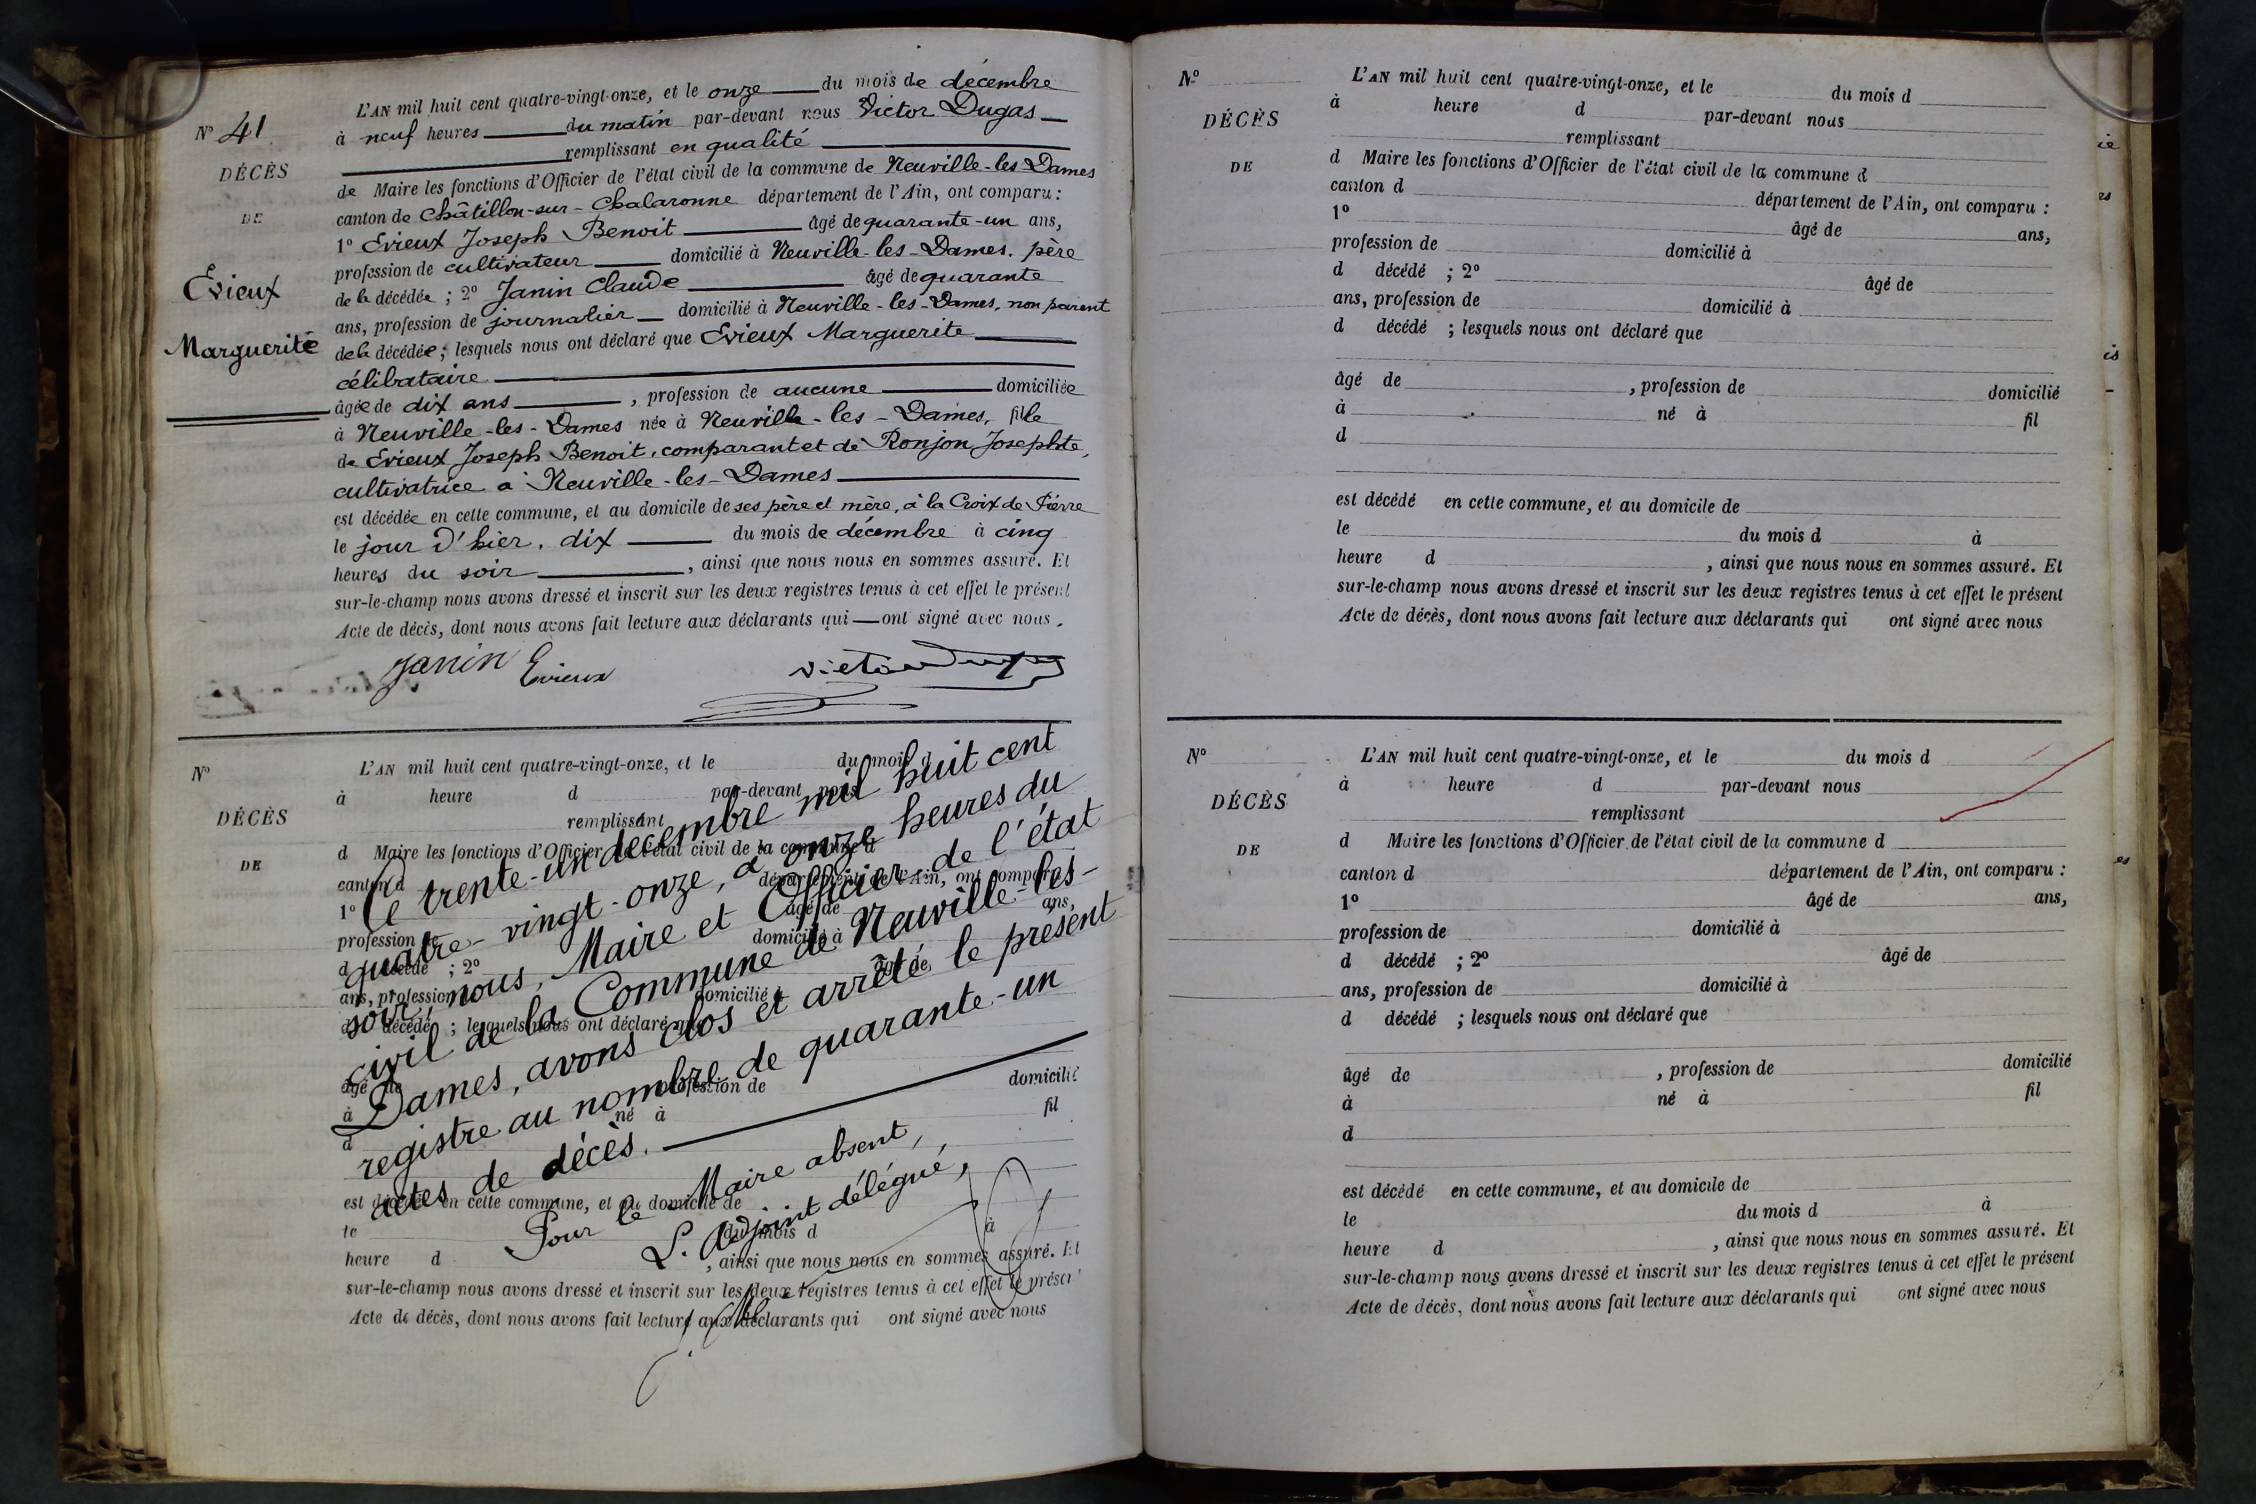 N° 41
DÉCÈS
DE
Evieux
Marguerite
L'AN mil huit cent quatre-vingt-onze, et le onze du mois de décembre
à neuf heures du matin par-devant nous Victor Dugas
remplissant en qualité
de Maire les fonctions d'Officier de l'état civil de la commune de Neuville-les-Dames
canton de Châtillon-sur-Chalaronne département de l'Ain, ont comparu :
1° Evieux Joseph Benoit âgé de quarante-un ans,
profession de cultivateur domicilié à Neuville-les-Dames. père
de la décédée ; 2° Janin Claude âgé de quarante
ans, profession de journalier domicilié à Neuville-les-Dames, non parent
de la décédée ; lesquels nous ont déclaré que Evieux Marguerite
célibataire
âgée de dix ans , profession de aucune domiciliée
à Neuville-les-Dames née à Neuville-les-Dames, fille
de Evieux Joseph Benoit, comparant et de Ronjon Josephte,
cultivatrice à Neuville-les-Dames
est décédée en cette commune, et au domicile de ses père et mère, à la Croix de Pierre
le jour d'hier, dix du mois de décembre à cinq
heures du soir , ainsi que nous nous en sommes assuré. Et
sur-le-champ nous avons dressé et inscrit sur les deux registres tenus à cet effet le présent
Acte de décès, dont nous avons fait lecture aux déclarants qui ont signé avec nous.
Janin Evieux Victor Dugas
N°
DÉCÈS
DE
L'AN mil huit cent quatre-vingt-onze, et le du mois d
à heure d par-devant nous
remplissant
d Maire les fonctions d'Officier de l'état civil de la commune d
canton d département de l'Ain, ont comparu :
1° âgé de ans,
profession de domicilié à
d décédé ; 2° âgé de
ans, profession de domicilié à
d décédé ; lesquels nous ont déclaré que
âgé de , profession de domicilié
à né à fil
d
est décédé en cette commune, et au domicile de
le du mois d à
heure d , ainsi que nous nous en sommes assuré. Et
sur-le-champ nous avons dressé et inscrit sur les deux registres tenus à cet effet le présent
Acte de décès, dont nous avons fait lecture aux déclarants qui ont signé avec nous
Le trente-un décembre mil huit cent
quatre-vingt-onze, à onze heures du
soir, nous, Maire et Officier de l'état
civil de la Commune de Neuville-les-
Dames, avons clos et arrêté le présent
registre au nombre de quarante-un
actes de décès.
Pour le Maire absent,
L'adjoint délégué,
N°
DÉCÈS
DE
L'AN mil huit cent quatre-vingt-onze, et le du mois d
à heure d par-devant nous
remplissant
d Maire les fonctions d'Officier de l'état civil de la commune d
canton d département de l'Ain, ont comparu :
1° âgé de ans,
profession de domicilié à
d décédé ; 2° âgé de
ans, profession de domicilié à
d décédé ; lesquels nous ont déclaré que
âgé de , profession de domicilié
à né à fil
d
est décédé en cette commune, et au domicile de
le du mois d à
heure d , ainsi que nous nous en sommes assuré. Et
sur-le-champ nous avons dressé et inscrit sur les deux registres tenus à cet effet le présent
Acte de décès, dont nous avons fait lecture aux déclarants qui ont signé avec nous
N°
DÉCÈS
DE
L'AN mil huit cent quatre-vingt-onze, et le du mois d
à heure d par-devant nous
remplissant
d Maire les fonctions d'Officier de l'état civil de la commune d
canton d département de l'Ain, ont comparu :
1° âgé de ans,
profession de domicilié à
d décédé ; 2° âgé de
ans, profession de domicilié à
d décédé ; lesquels nous ont déclaré que
âgé de , profession de domicilié
à né à fil
d
est décédé en cette commune, et au domicile de
le du mois d à
heure d , ainsi que nous nous en sommes assuré. Et
sur-le-champ nous avons dressé et inscrit sur les deux registres tenus à cet effet le présent
Acte de décès, dont nous avons fait lecture aux déclarants qui ont signé avec nous